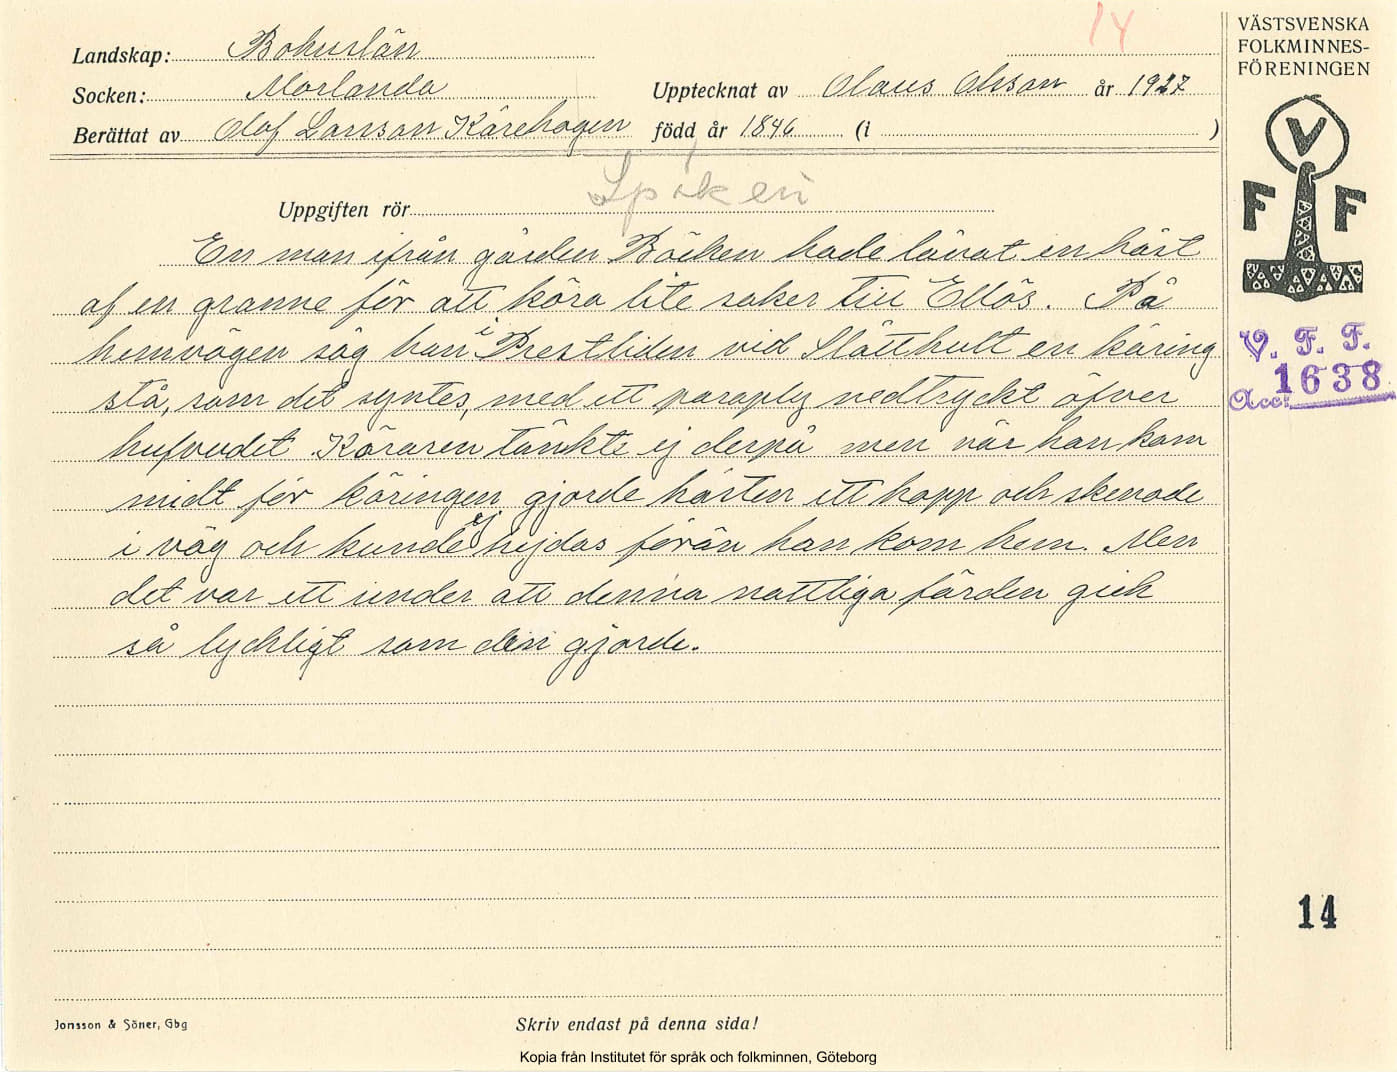 14
VÄSTSVENSKA
FOLKMINNES-
FÖRENINGEN
Landskap: Bohuslän
Socken: Morlanda
Upptecknat av Olaus Olsson år 1927
Berättat av Olof Larsson Kärehogen född år 1846 (i )
V
F F
Uppgiften rör Spöken
En man ifrån gården Böcken hade lånat en häst
af en granne för att köra lite saker till Ellös. På
hemvägen såg han i Prestliden vid Slätthult en käring
stå, som det syntes, med ett paraply nedtryckt öfver
hufvudet Köraren tänkte ej derpå men när han kom
midt för käringen gjorde hästen ett hopp och skenade
i väg och kunde ej hejdas förän han kom hem. Men
det var ett under att denna nattliga färden gick
så lyckligt som den gjorde.
V. F. F.
Acc. 1638
14
Jonsson & Söner, Gbg
Skriv endast på denna sida!
Kopia från Institutet för språk och folkminnen, Göteborg